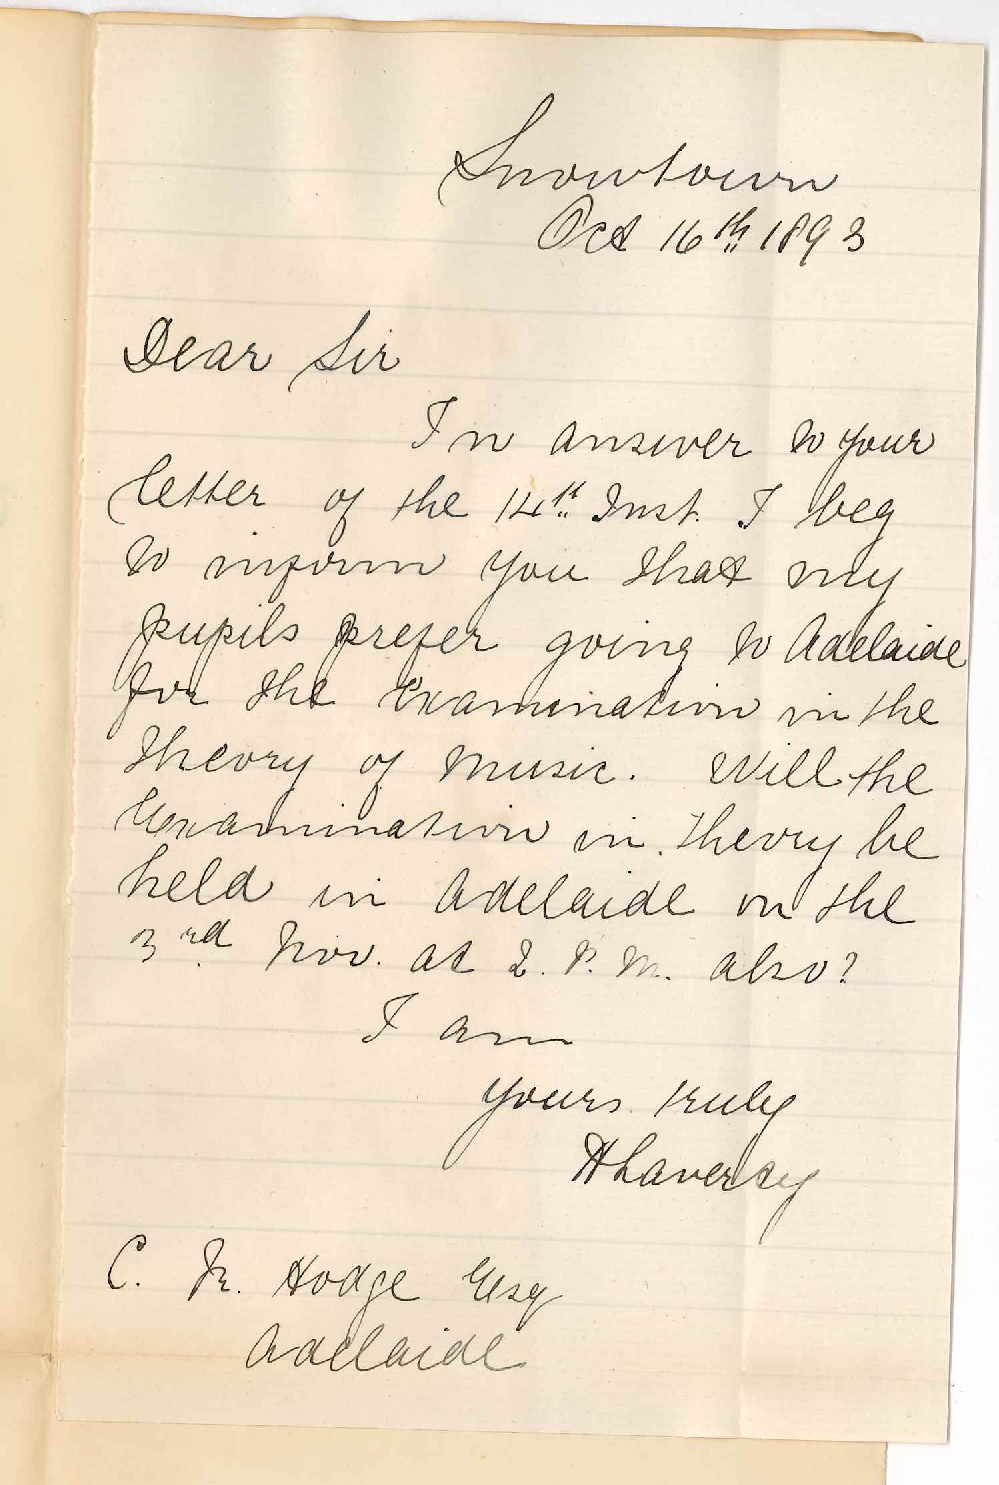 Snowtown
Oct 16th 1893
Dear Sir
In answer to your
letter of the 14th Inst. I beg
to inform you that my
pupils prefer going to Adelaide
for the Examination in the
theory of Music. Will the
Examination in theory be
held in Adelaide on the
3rd Nov. at 2. P. M. also?
I am
yours truly
C. R. Hodge Esq
Adelaide